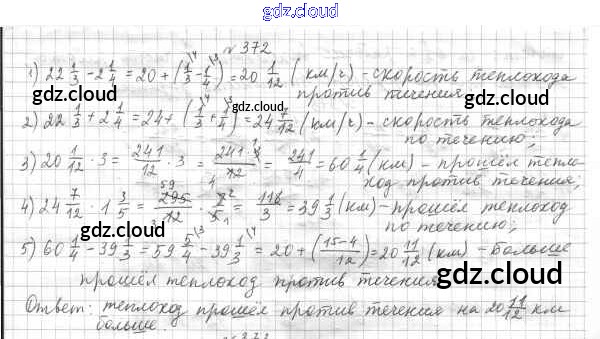 gdz.cloud
№ 372
1) 22 1/3 - 2 1/4 = 20 + (1/3 - 1/4) = 20 1/12 (км/ч) - скорость теплохода
против течения
gdz.cloud gdz.cloud
2) 22 1/3 + 2 1/4 = 24 + (1/3 + 1/4) = 24 7/12 (км/ч) - скорость теплохода
по течению;
3) 20 1/12 · 3 = 241/12 · 3 = 241·1/12 = 241/4 = 60 1/4 (км) - прошёл тепло-
ход против течения;
4) 24 7/12 · 1 3/5 = 295/12 · 8/5 = 118/3 = 39 1/3 (км) - прошёл теплоход
по течению;
gdz.cloud gdz.cloud
5) 60 1/4 - 39 1/3 = 59 5/4 - 39 1/3 = 20 + (15-4/12) = 20 11/12 (км) - больше
прошёл теплоход против течения
gdz.cloud
Ответ: теплоход прошёл против течения на 20 11/12 км
больше.
№ 373